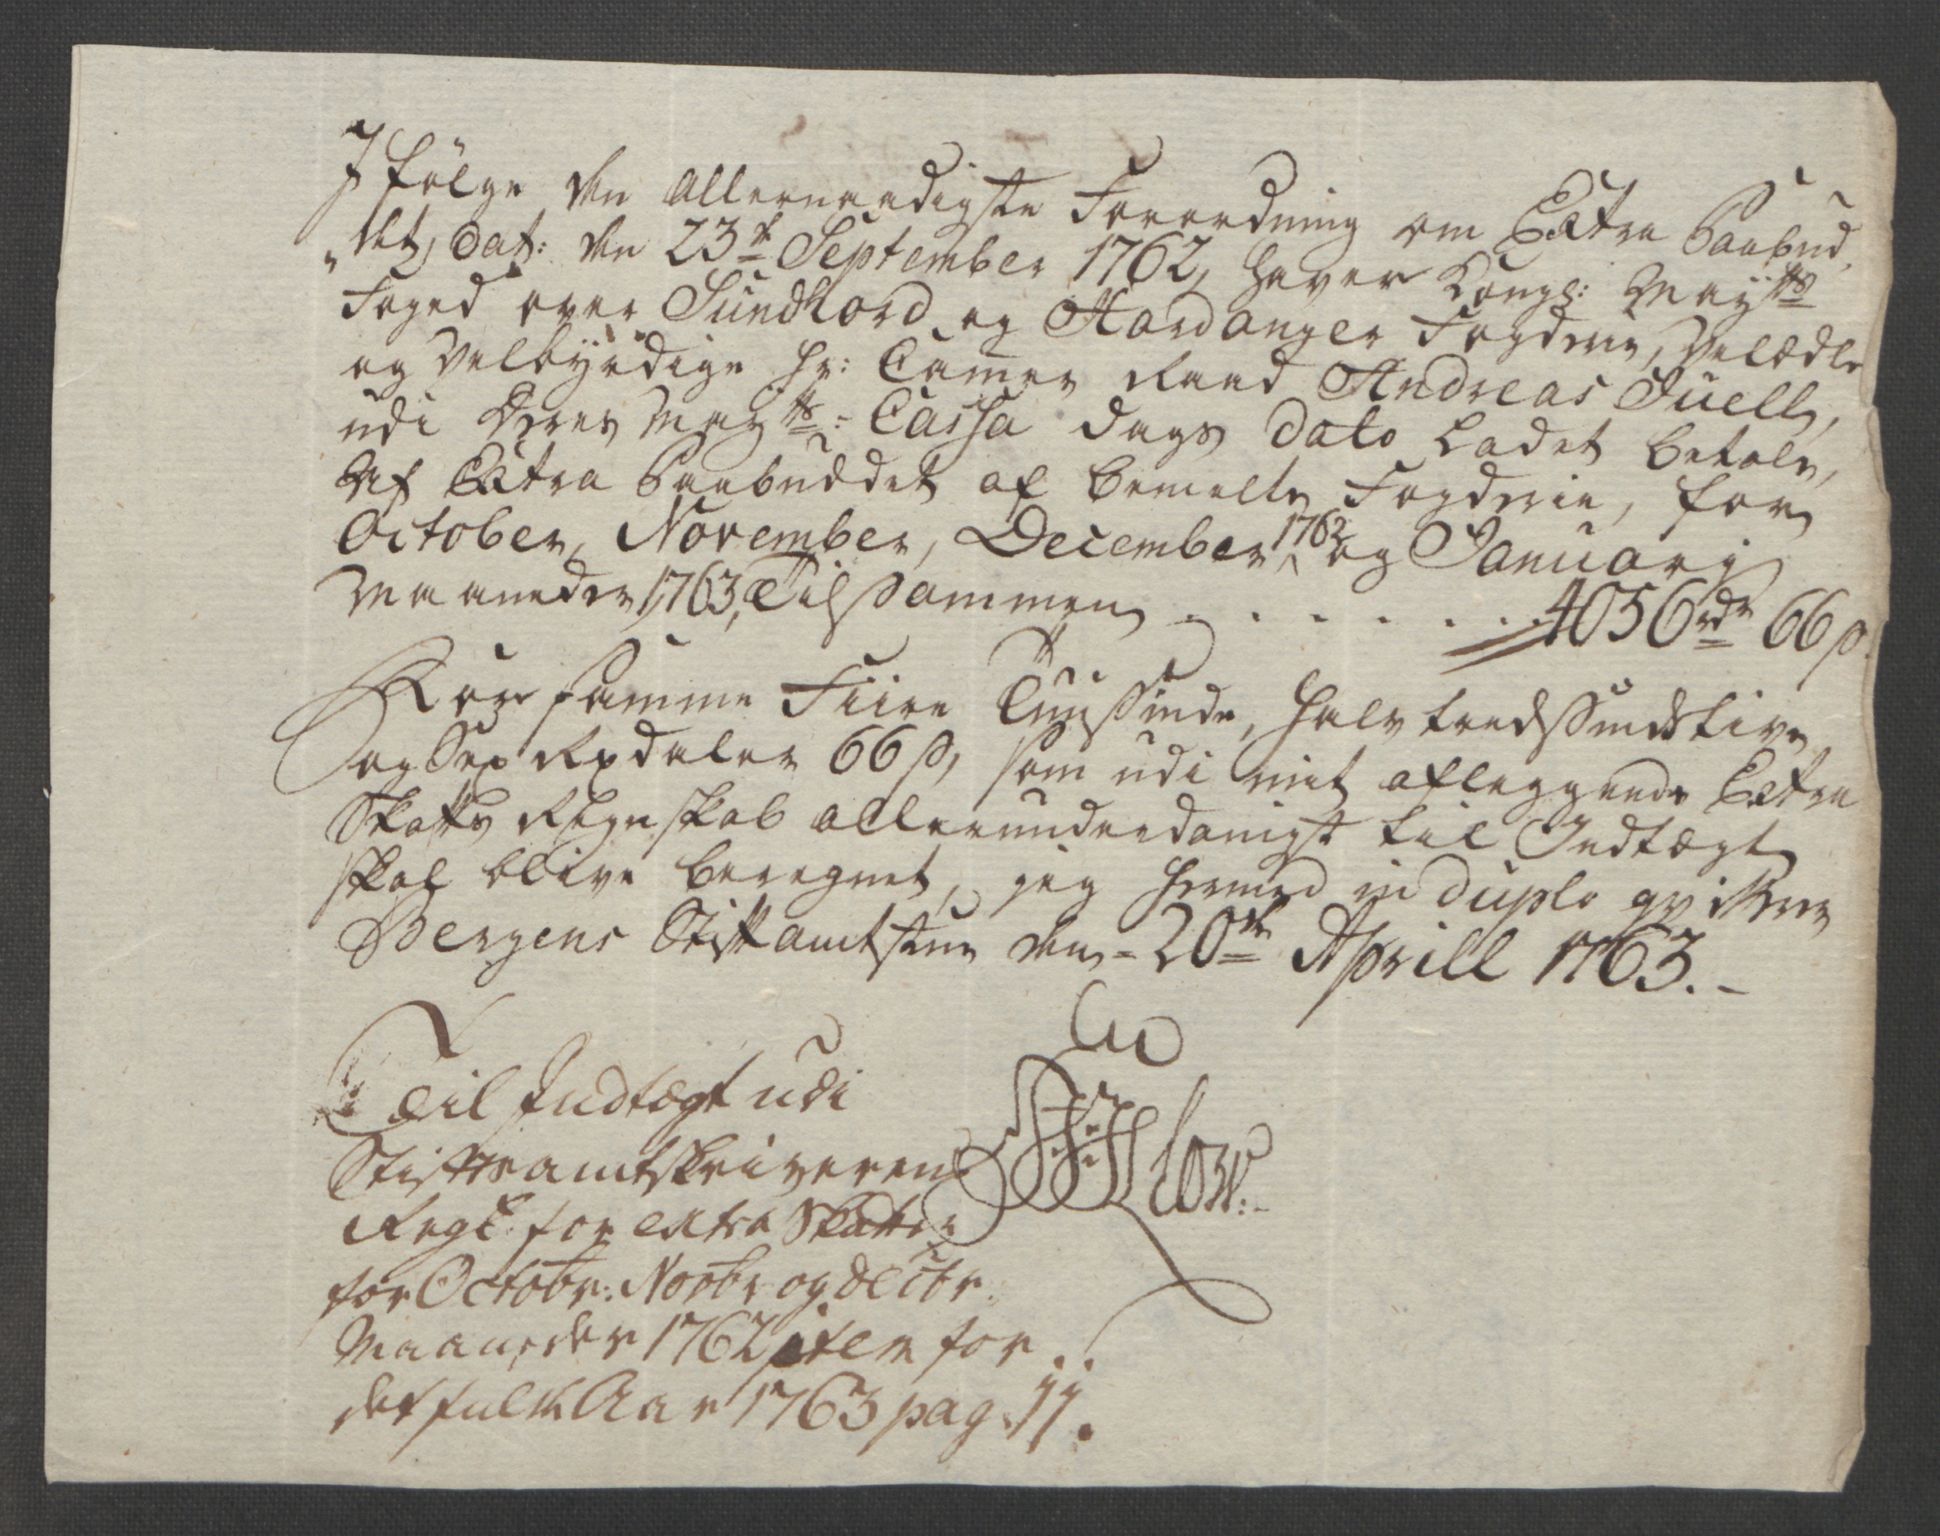 I følge den Allernaadigste Forordning om Extra Paabud,
„det, Dat: den 23de September 1762, haver Kongl: Maytts
Foged over Sundhord og Hardanger Fogderie, Velædle
og Velbyrdige Hr: Cammer Raad Andreas Juell,
udi Deres Maytts: Cassa Dags Dato Ladet betale,
Af Extra Paabuddet af bemelte Fogderie, for
October, November, December 1762 og Januarij
Maaneder 1763, Tilsammen . . . . . . . 4056 rdr 66 s.
For samme Fiire Tuusinde, Halvtredssindstive
og Sex Rxdaler 66 s, som udi mit aflæggende Extra
Skatts Regnskab allerunderdanigst til Indtægt
skal blive beregnet, jeg hermed in duplo qvitterer
Bergens Stiftamtstue den 20de Aprill 1763. -
Til Indtægt udi
Stiftsamtskriverens
Regs: for extra Skatten
for Octobr: Novbr og Decbr.
Maaneder 1762 item for
det fulde Aar 1763 pag. 11.